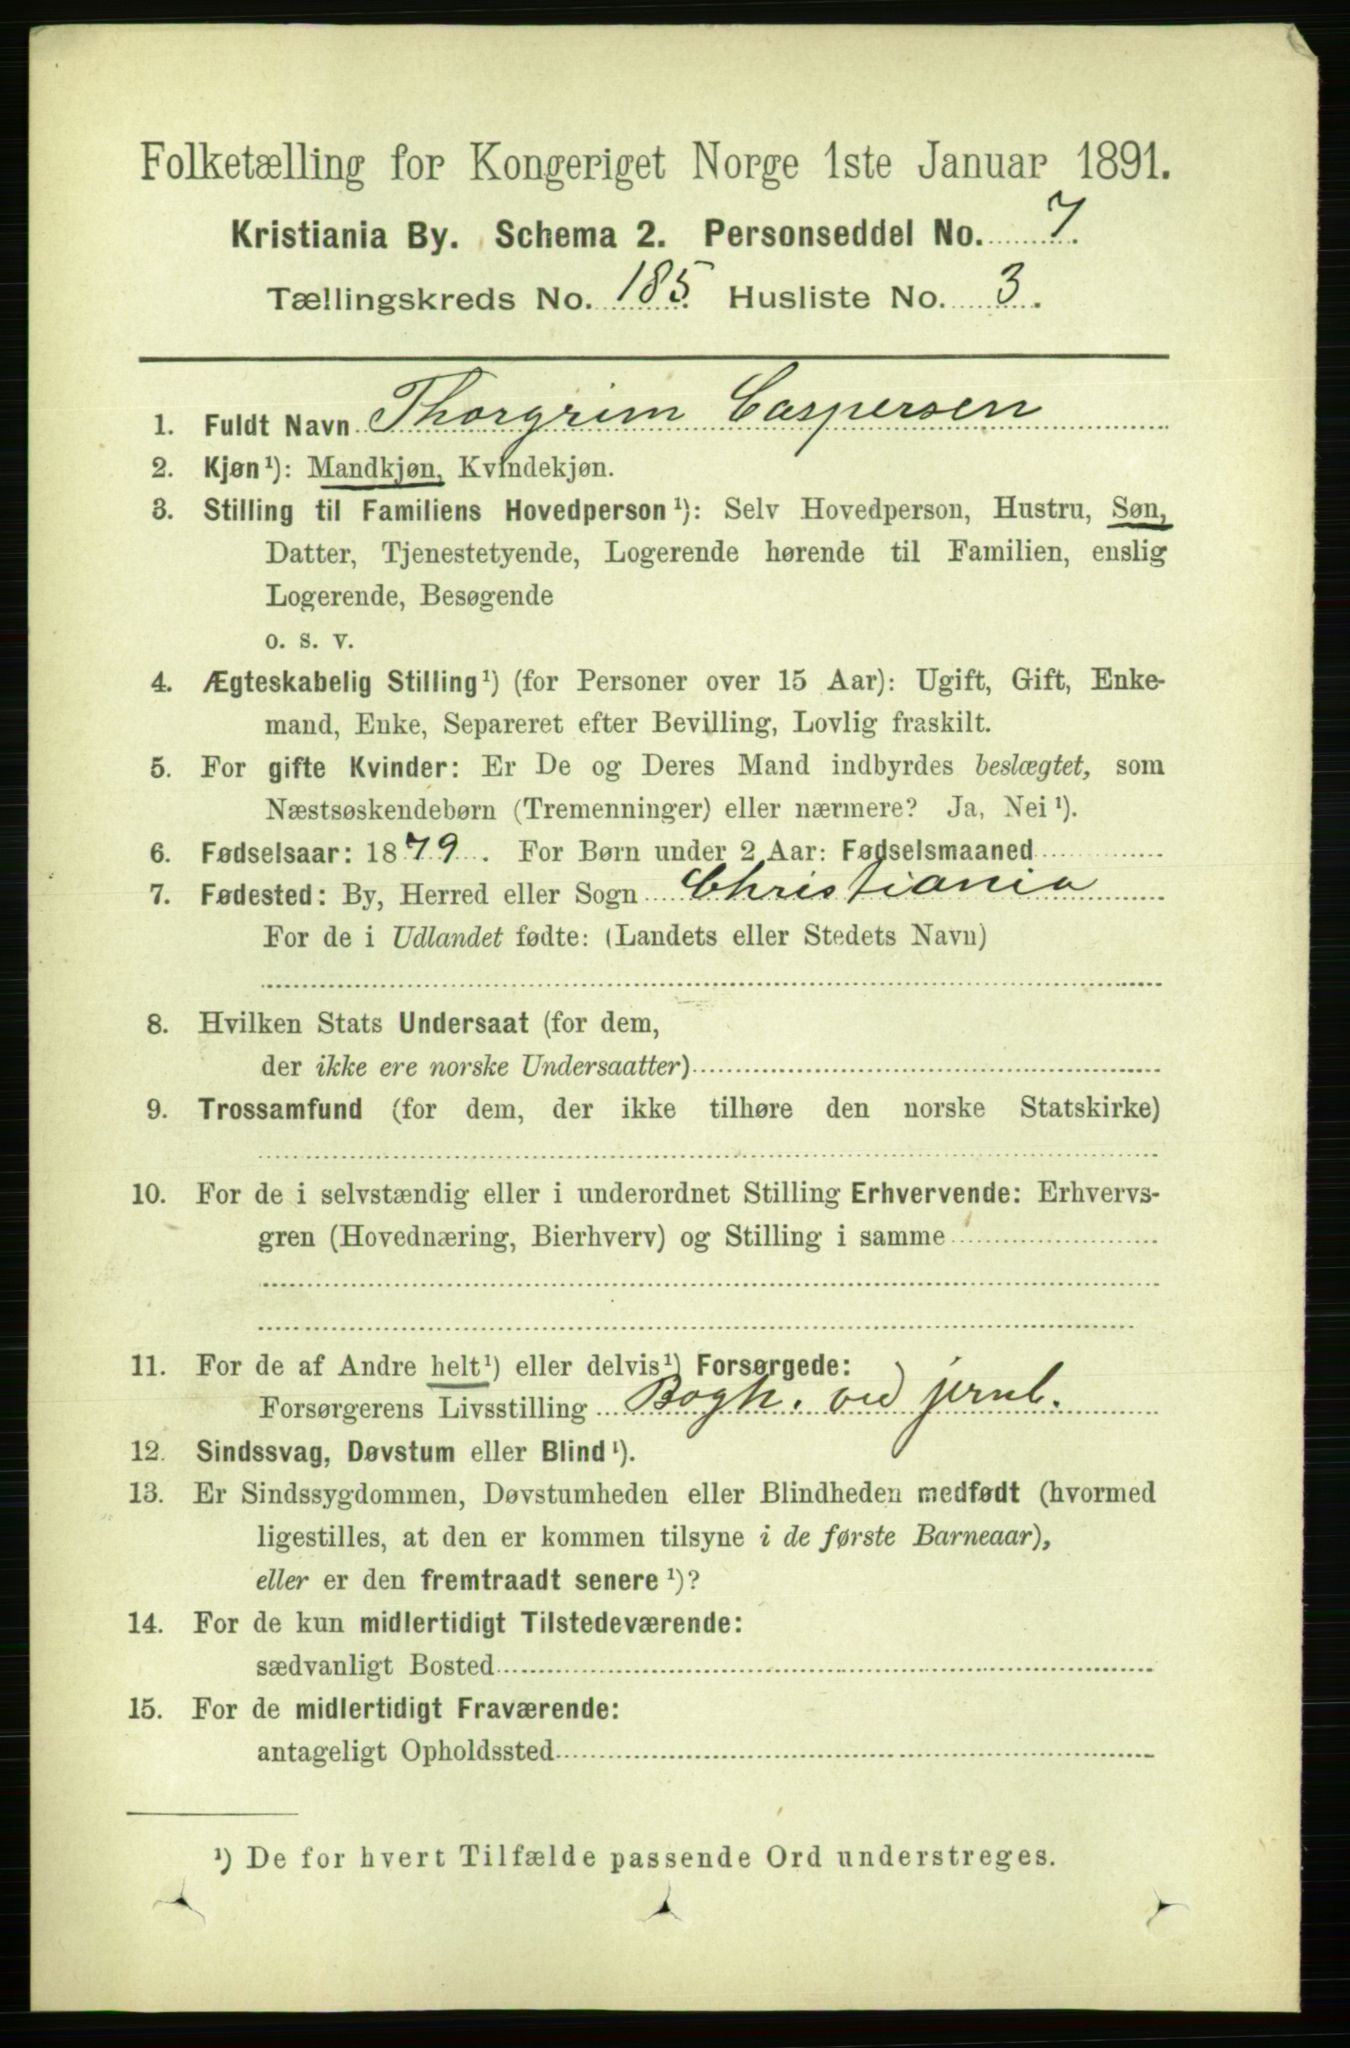 Folketælling for Kongeriget Norge 1ste Januar 1891.
Kristiania By. Schema 2. Personseddel No. 7.
Tællingskreds No. 185 Husliste No. 3.
1. Fuldt Navn Thorgrim Caspersen
2. Kjøn ¹): Mandkjøn, Kvindekjøn.
3. Stilling til Familiens Hovedperson ¹): Selv Hovedperson, Hustru, Søn,
Datter, Tjenestetyende, Logerende hørende til Familien, enslig
Logerende, Besøgende
o. s. v.
4. Ægteskabelig Stilling ¹) (for Personer over 15 Aar): Ugift, Gift, Enke-
mand, Enke, Separeret efter Bevilling, Lovlig fraskilt.
5. For gifte Kvinder: Er De og Deres Mand indbyrdes beslægtet, som
Næstsøskendebørn (Tremenninger) eller nærmere? Ja, Nei ¹).
6. Fødselsaar: 1879. For Børn under 2 Aar: Fødselsmaaned
7. Fødested: By, Herred eller Sogn Christiania
For de i Udlandet fødte: (Landets eller Stedets Navn)
8. Hvilken Stats Undersaat (for dem,
der ikke ere norske Undersaatter)
9. Trossamfund (for dem, der ikke tilhøre den norske Statskirke)
10. For de i selvstændig eller i underordnet Stilling Erhvervende: Erhvervs-
gren (Hovednæring, Bierhverv) og Stilling i samme
11. For de af Andre helt ¹) eller delvis ¹) Forsørgede:
Forsørgerens Livsstilling Bogh. ved jernb.
12. Sindssvag, Døvstum eller Blind ¹).
13. Er Sindssygdommen, Døvstumheden eller Blindheden medfødt (hvormed
ligestilles, at den er kommen tilsyne i de første Barneaar),
eller er den fremtraadt senere ¹)?
14. For de kun midlertidigt Tilstedeværende:
sædvanligt Bosted
15. For de midlertidigt Fraværende:
antageligt Opholdssted
¹) De for hvert Tilfælde passende Ord understreges.